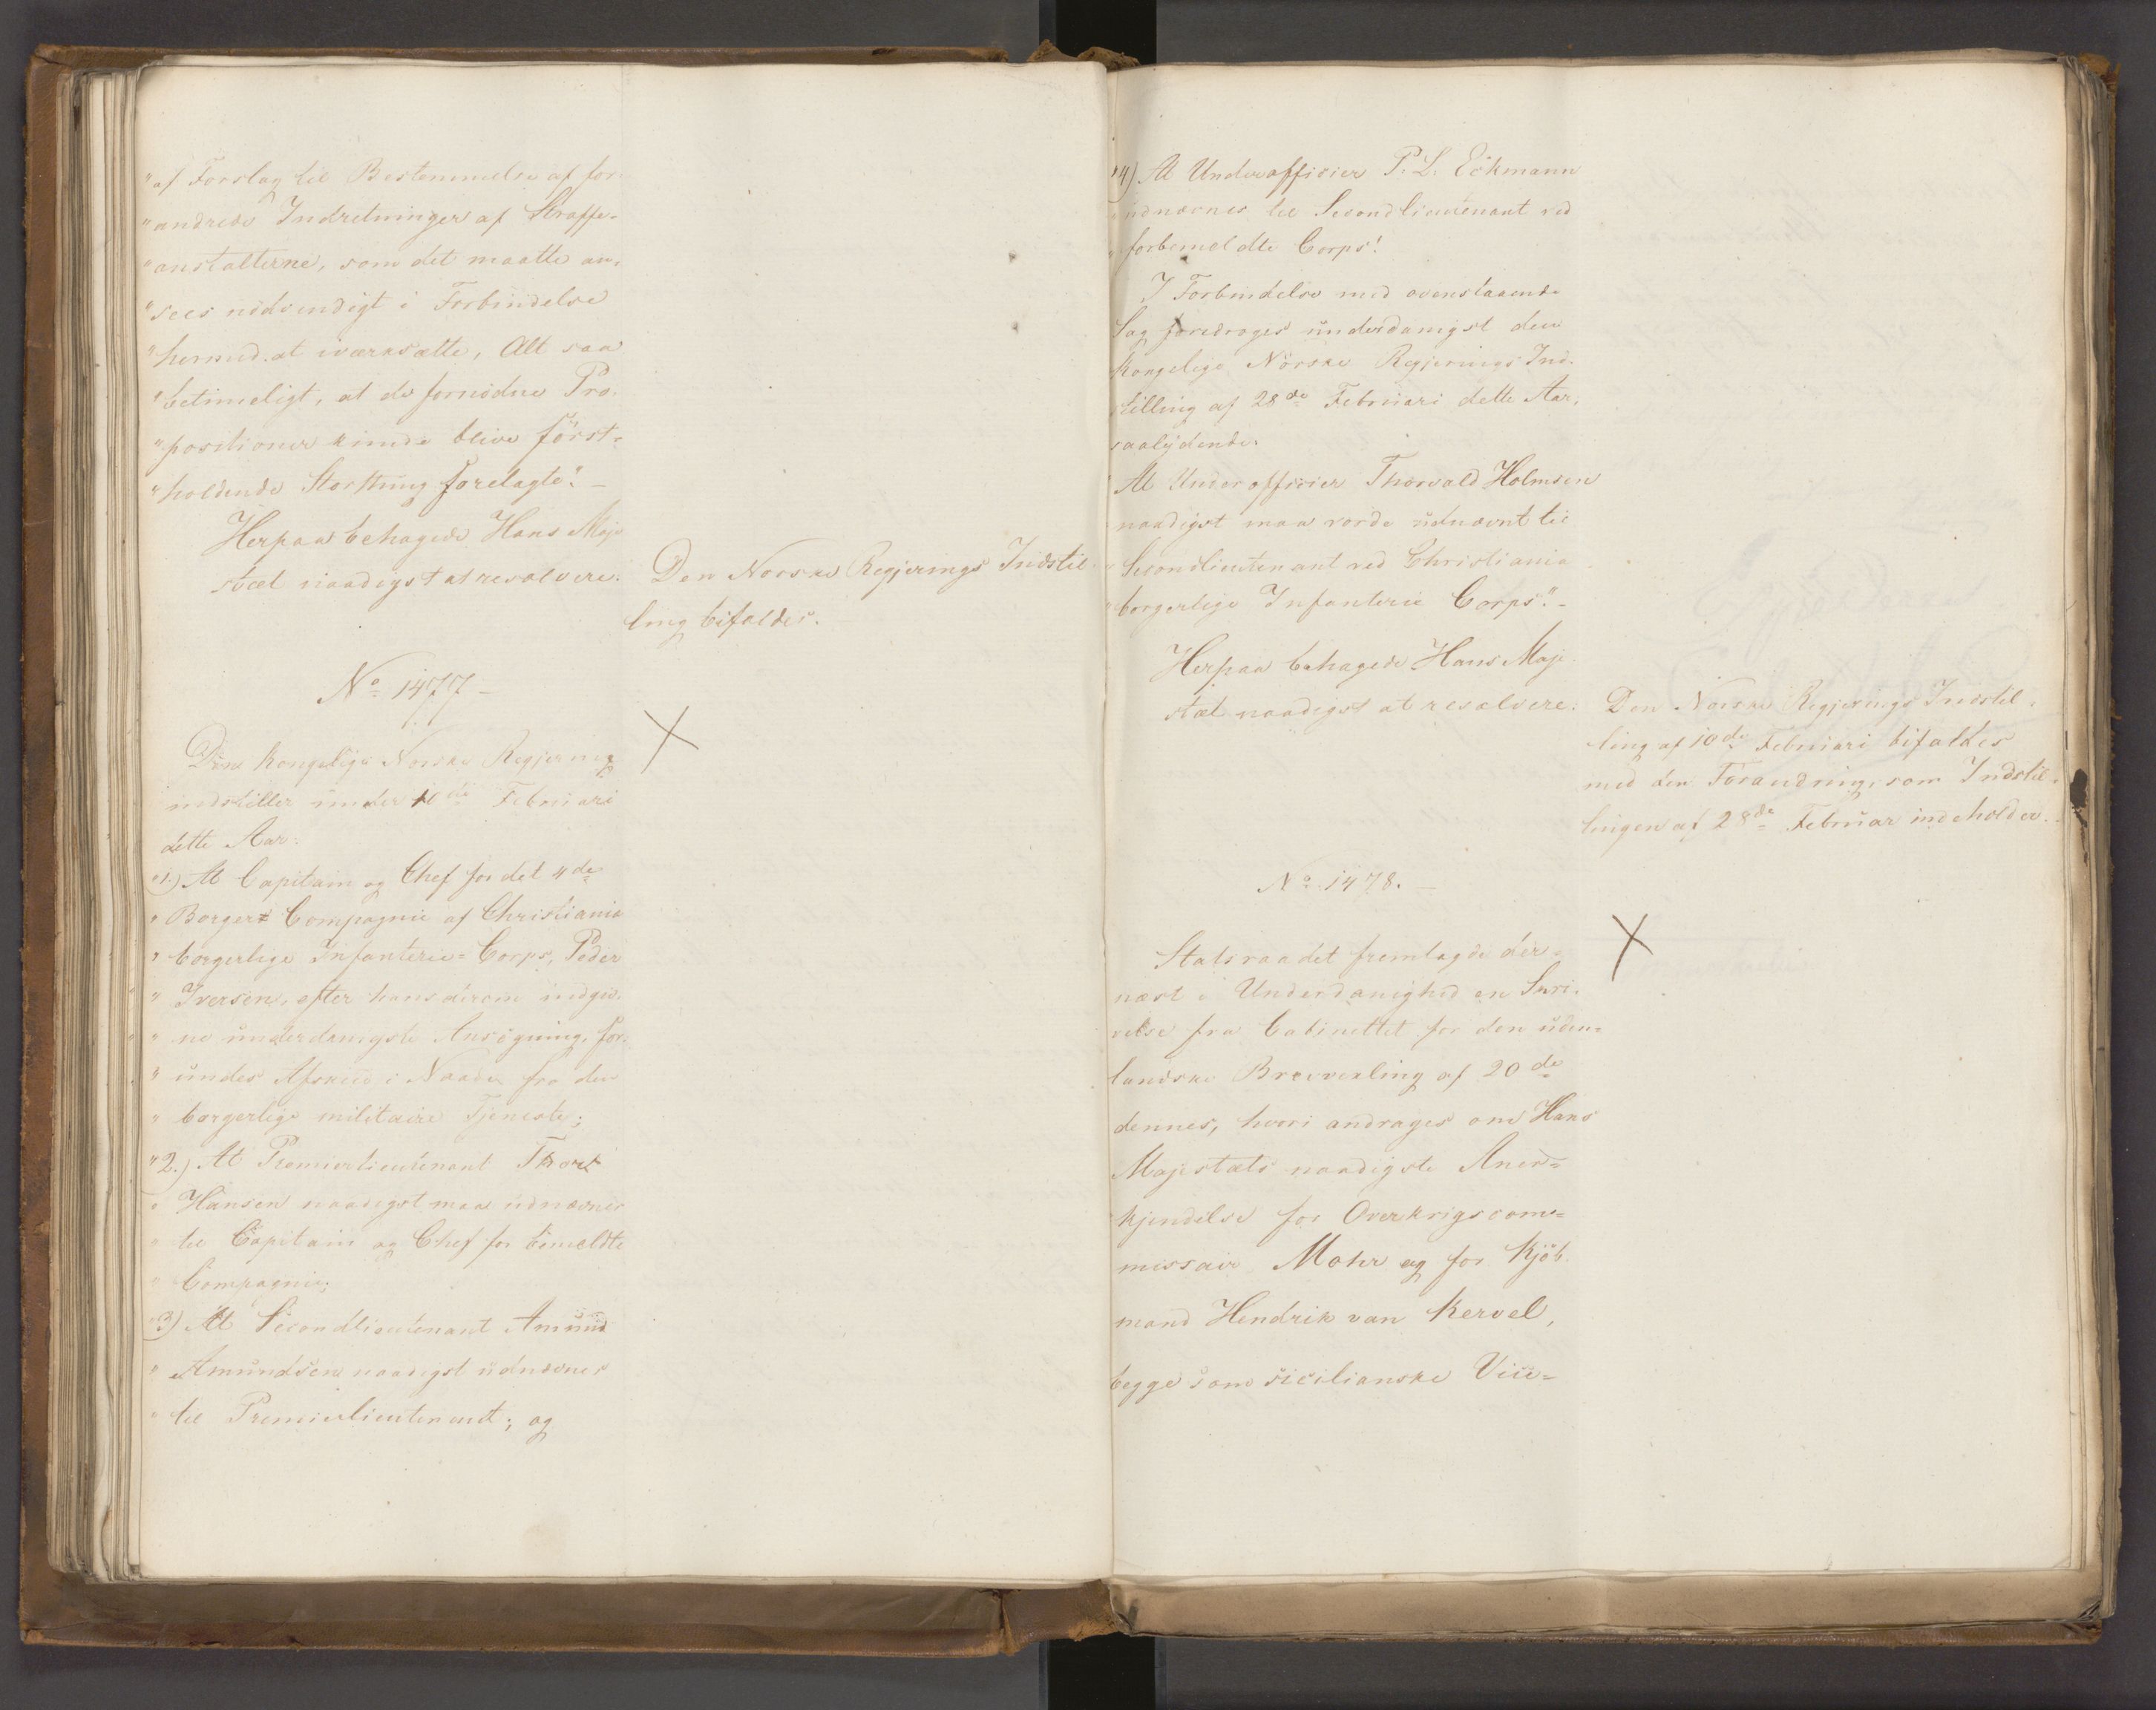 "af Forslag til Bestemmelse af for-
"andrede Indretninger af Straffe-
"anstalterne, som det maatte an-
"sees nödvendigt i Forbindelse
"hermed at iværksætte, Alt saa
"betimeligt, at de fornödne Pro-
"positioner kunde blive först-
"holdende Storthing forelagte." -
Herpaa behagede Hans Maje-
stæt naadigst at resolvere:
Den Norske Regjerings Indstil-
ling bifaldes.
No 1477 -
Den Kongelige Norske Regjering
indstiller under 10de Februari
dette Aar:
"1.) At Capitain og Chef for det 4de
" Borger= Compagnie af Christiania
" borgerlige Infanterie= Corps, Peder
" Iversen, efter hans derom indgiv-
" ne underdanigste Ansögning, for-
" undes Afsked i Naade fra den
" borgerlige militaire Tjeneste;
"2.) At Premierlieutenant Thor
" Hansen naadigst maa udnævnes
" til Capitain og Chef for bemeldte
" Compagnie;
"3) At Secondlieutenant Amund
" Amundsen naadigst udnævnes
" til Premierlieutenant; og
"4) At Underofficier P. L. Eckmann
"udnævnes til Secondlieutenant ved
"forbemeldte Corps."
I Forbindelse med ovenstaaende
Sag foredroges underdanigst den
Kongelige Norske Regjerings Ind-
stilling af 28de Februari dette Aar,
saalydende:
"At Underofficier Thorvald Holmsen
"naadigst maa vorde udnævnt til
"Secondlieutenant ved Christiania
"borgerlige Infanterie Corps." -
Herpaa behagede Hans Maje-
stæt naadigst at resolvere:
Den Norske Regjerings Indstil-
ling af 10de Februari bifaldes
med den Forandring, som Indstil-
lingen af 28de Februar indeholder.
No 1478. -
Statsraadet fremlagde der-
næst i Underdanighed en Skri-
velse fra Cabinettet for den uden-
landske Brevvexling af 20de
dennes, hvori andrages om Hans
Majestæts naadigste Aner=
kjendelse for Overkrigscom=
missair Mohr og for Kjöb-
mand Hendrik van Kervel,
begge som sicilianske Vice=